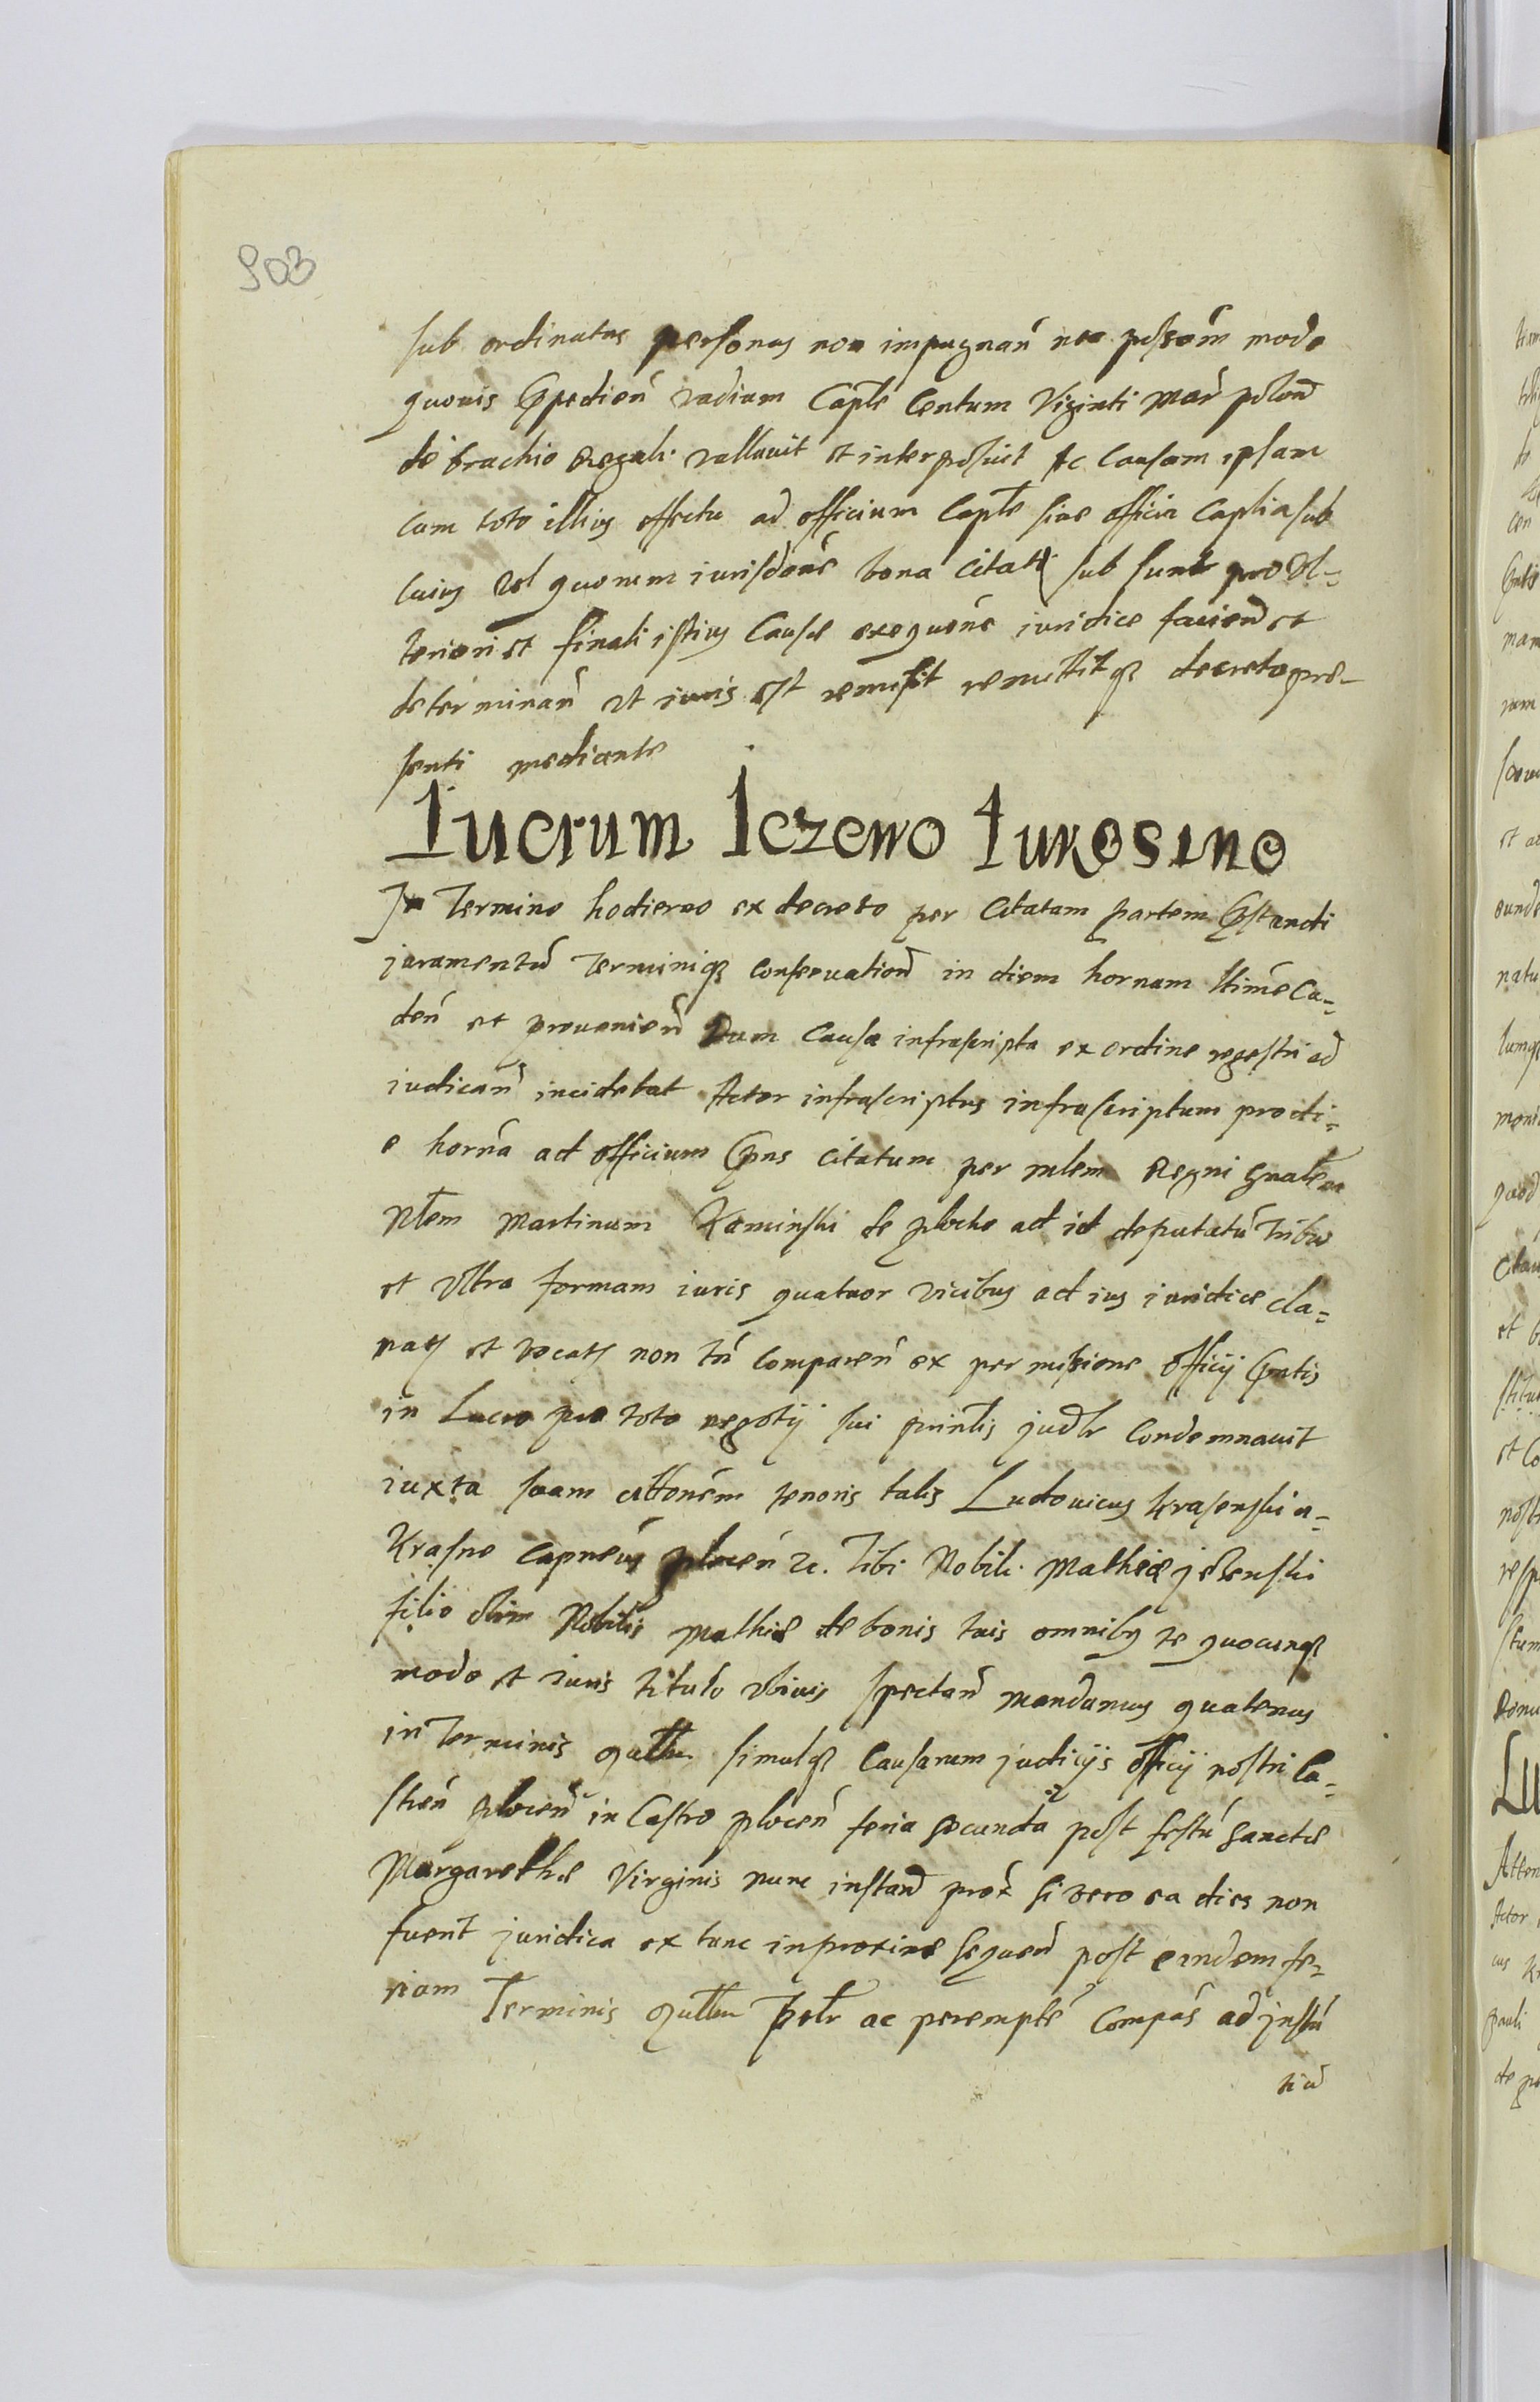 903
sub ordinatas personas non impugnań nec possom̃ modo
quovis Expedień vadium Caplẽ Centum Viginti Mar̃ polon̄
de brachio Regali vallavit et interposuit Ac Causam ipsam
cum toto illius effectu ad officium Caplẽ sive officia Caplia sub
cuius vel quorum iurisdonẽ bona citati sub sunt pro Vl=
teriori et finali istius Causæ exequõne iuridice faciend et
determinań ut iuris est remisit remittitq decreto præ-
senti mediante
Lucrum Iezewo Iurosino
In Termino hodierno ex decreto per Citatam partem Præstandi
juramentũ Terminiq conservationẽ in diem hornam Ltimẽ Ca=
deń et provenień Dum Causa infrascripta ex ordine regestri ad
iudicand incidebat Actor infrascriptus infrascriptum pro di=
e horna ad officium Præns citatum per mlem Regni Gnalem
Nblem Martinum Kaminski de plocko ad id deputatũ Tribus
et Ultra formam iuris quatuor vicibus ad ius iuridice cla=
matũ et vocatũ non tń Comparen ex permissione officij Præntis
in Lucro pro toto negotij sui prinlis judlr Condemnavit
iuxta suam citationem tenoris talis Ludovicus Krasenski a=
Krasne Capneus plocen̄ zc. Tibi Nobili Mathiæ jezewski
filio olim Nobilis Mathiæ de bonis tuis omnibq te quocunq
modo et iuris titulo ubivis spectand mandamus quatenus
in Terminis qullu simulq Causarum judicijs officij nostri Ca=
strén plocen̄ in Castro plocen̄ feria secunda post festũ Sanctæ
Margarethæ Virginis nunc instand prox̃ si vero ea dies non
fuerit juridica ex tunc in proxime sequen̄ post eandem fe=
riam Terminis qullu Petr ac peremptẽ Compás ad jnstã
tiã